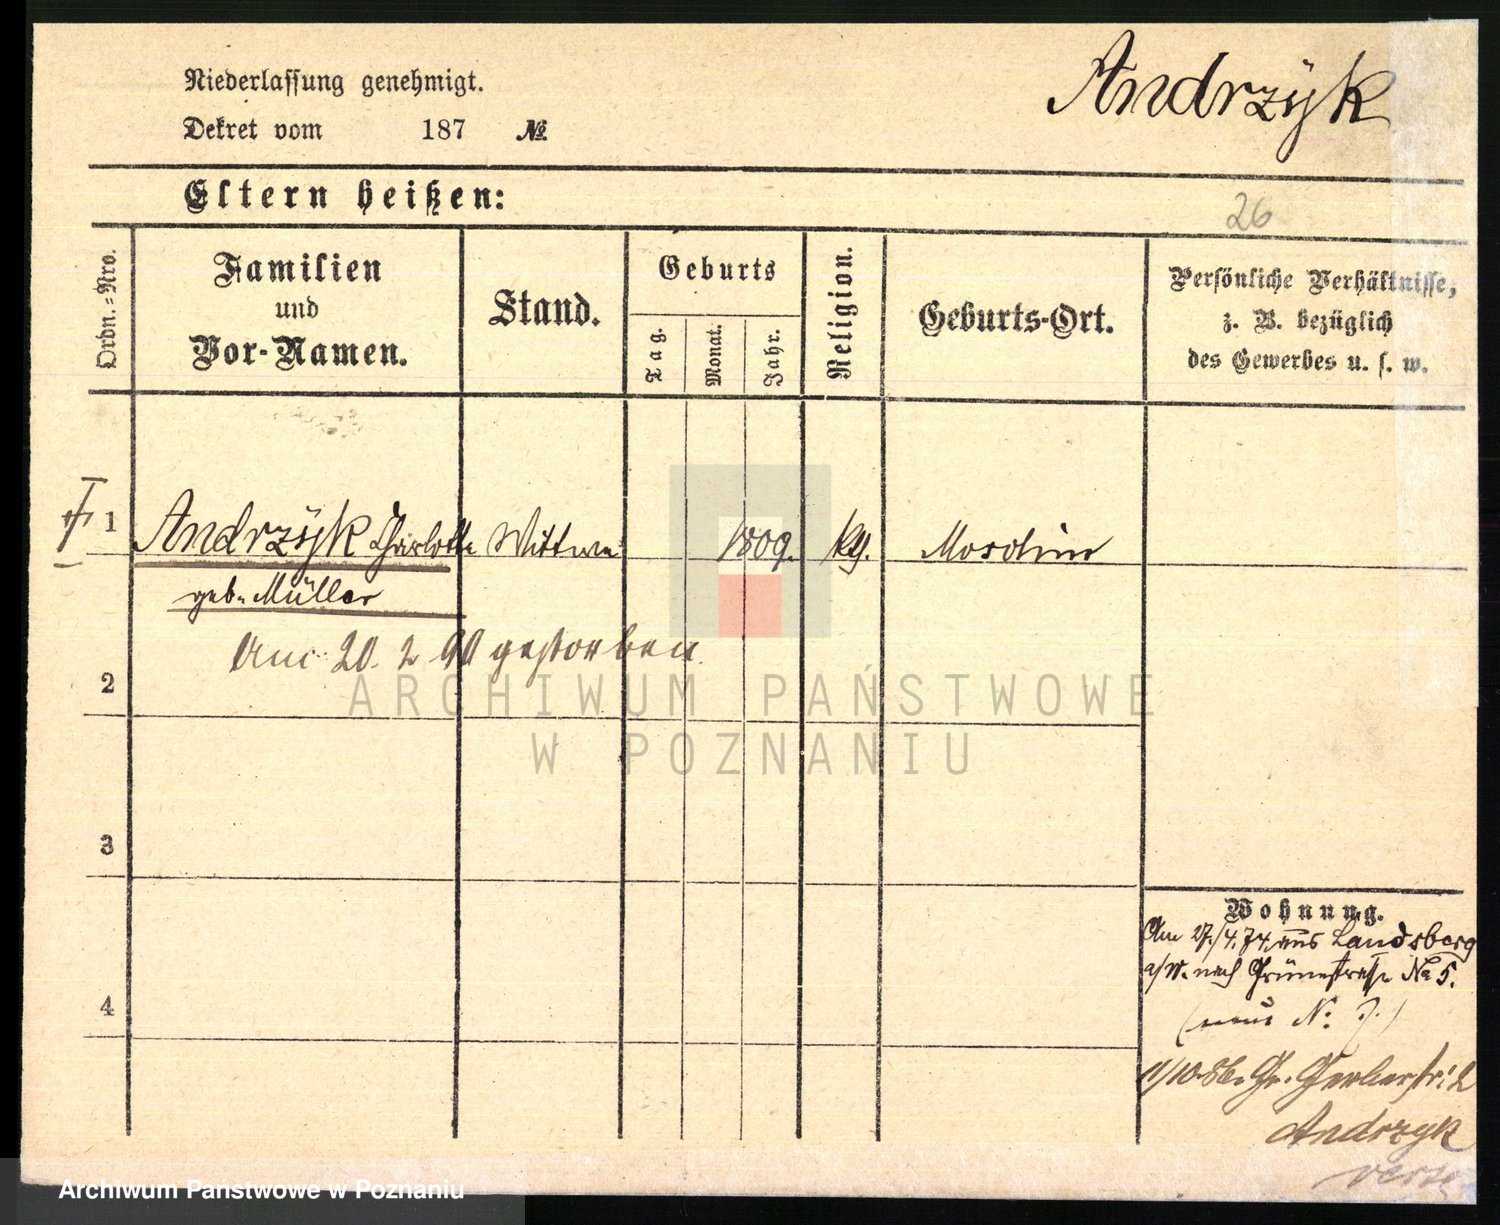 Andrzÿk
Niederlassung genehmigt.
Dekret vom 187 №
Eltern heißen:
26
Ordn.-Nro.
Familien
und
Vor-Namen.
Stand.
Geburts
Tag.
Monat.
Jahr.
Religion.
Geburts-Ort.
Persönliche Verhältnisse,
z. B. bezüglich
des Gewerbes u. s. w.
1 Andrzÿk Charlotte Wittwe 1809. Moschin
geb. Müller
Am 20. 2 90 gestorben.
2
3
4
Wohnung.
Am 27./4.74. aus Landsberg
a/W. nach Grünestrasse No 5.
(neue N: 7.)
1/10.86. Gr. Gerberstr: 2
Andrzyk
verse
ARCHIWUM PAŃSTWOWE
W POZNANIU
Archiwum Państwowe w Poznaniu